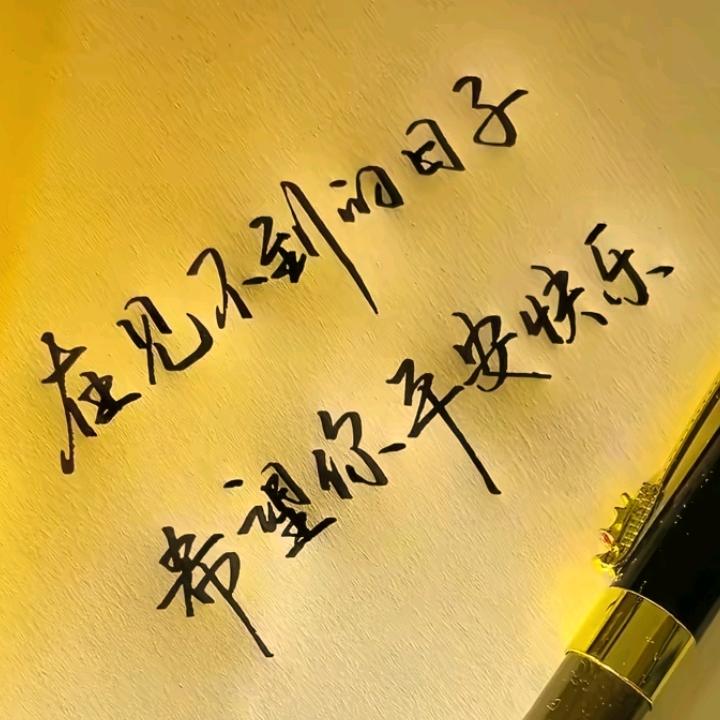 在见不到的日子
希望你平安快乐